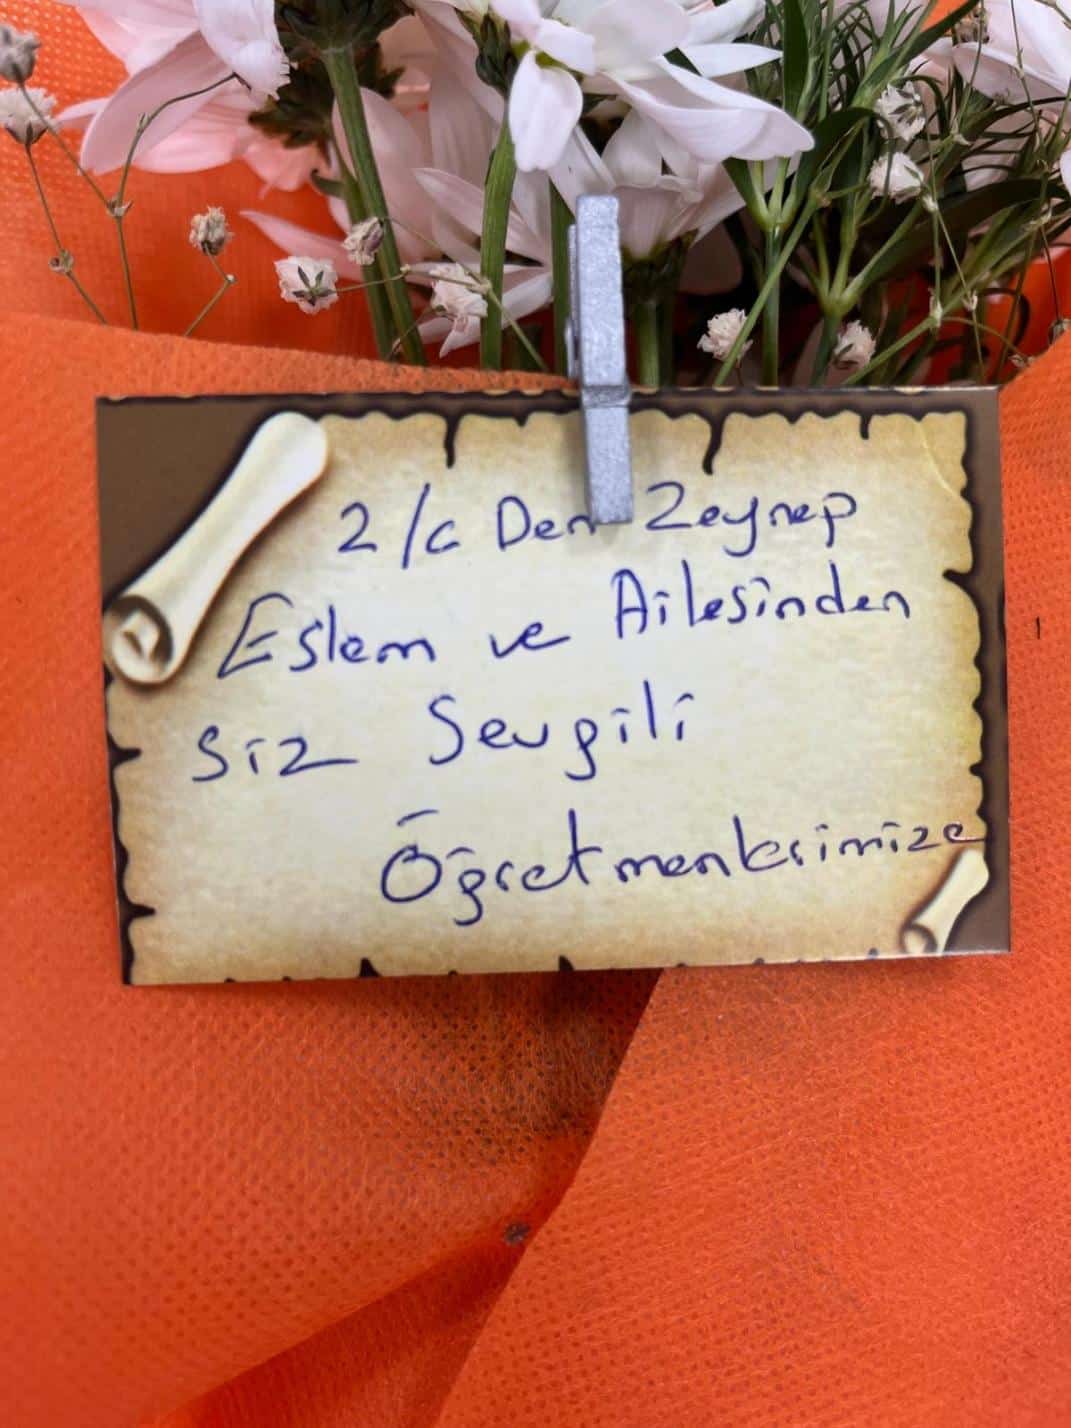 2/c Den Zeynep
Eslem ve Ailesinden
Siz Sevgili
Öğretmenlerimize